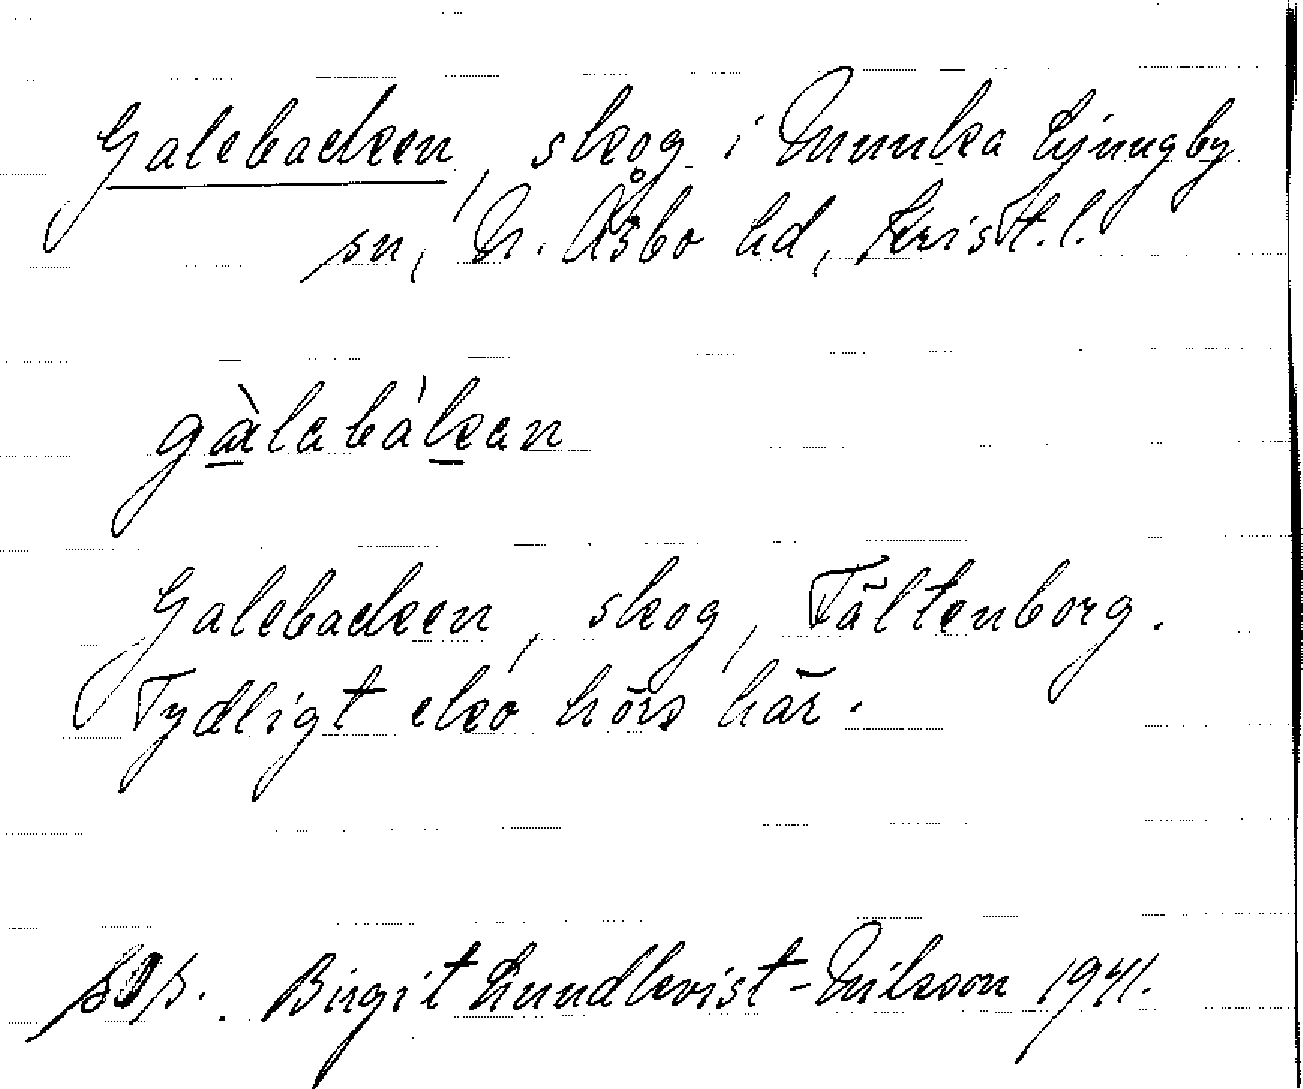 Galebacken, skog i Munka Ljungby
sn, N. Åsbo hd, Krist. l.
gàlabákan
Galebacken, skog, Fältenborg.
Tydligt eko hörs här.
Birgit Lundkvist-Nilsson 1941.